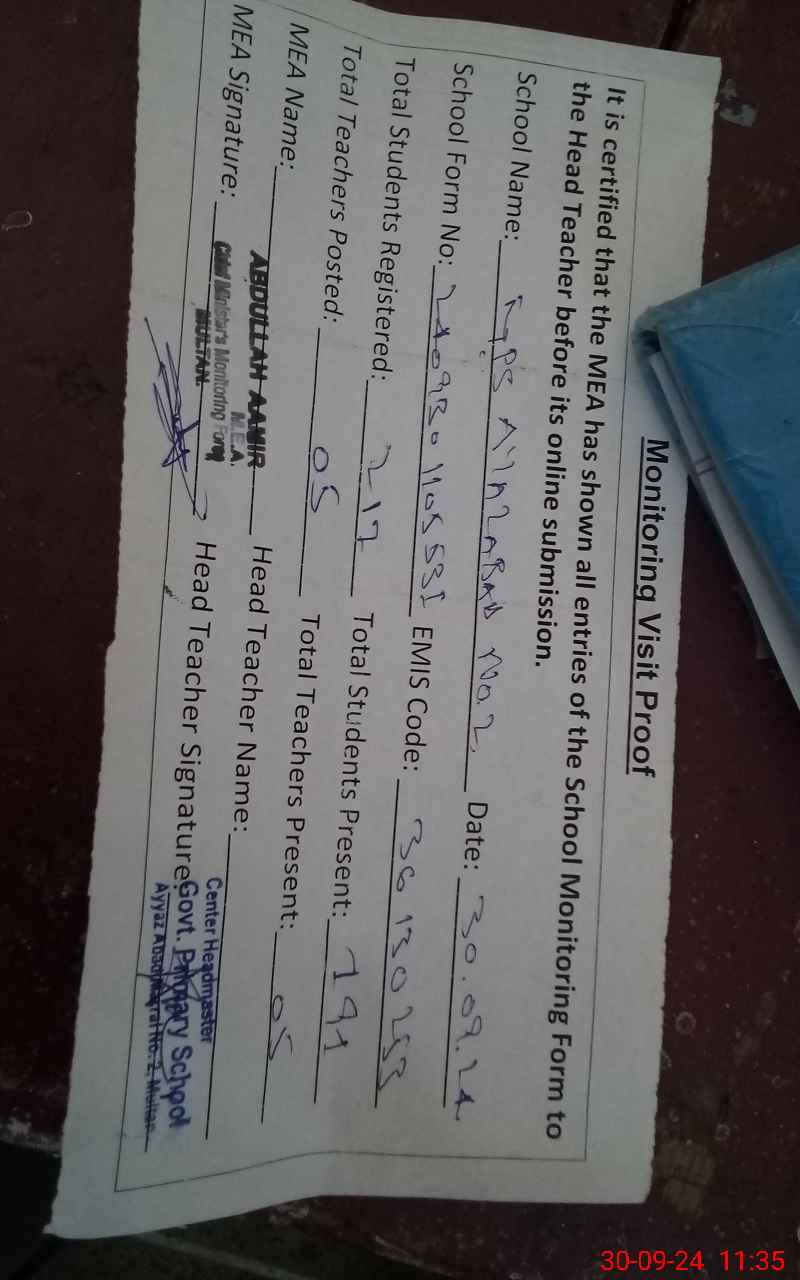 Monitoring Visit Proof
It is certified that the MEA has shown all entries of the School Monitoring Form to
the Head Teacher before its online submission.
School Name: GPS AYAZABAD No.2 Date: 30.09.24
School Form No: EMIS Code: 36130253
Total Students Registered: 217 Total Students Present: 191
Total Teachers Posted: 05 Total Teachers Present: 05
MEA Name: ABDULLAH AAMIR Head Teacher Name:
M.E.A.
Chief Minister's Monitoring Force
MULTAN.
MEA Signature: Head Teacher Signature:
Center Headmaster
Govt. Primary School
Ayyaz Abad No. 2, Multan
30-09-24 11:35